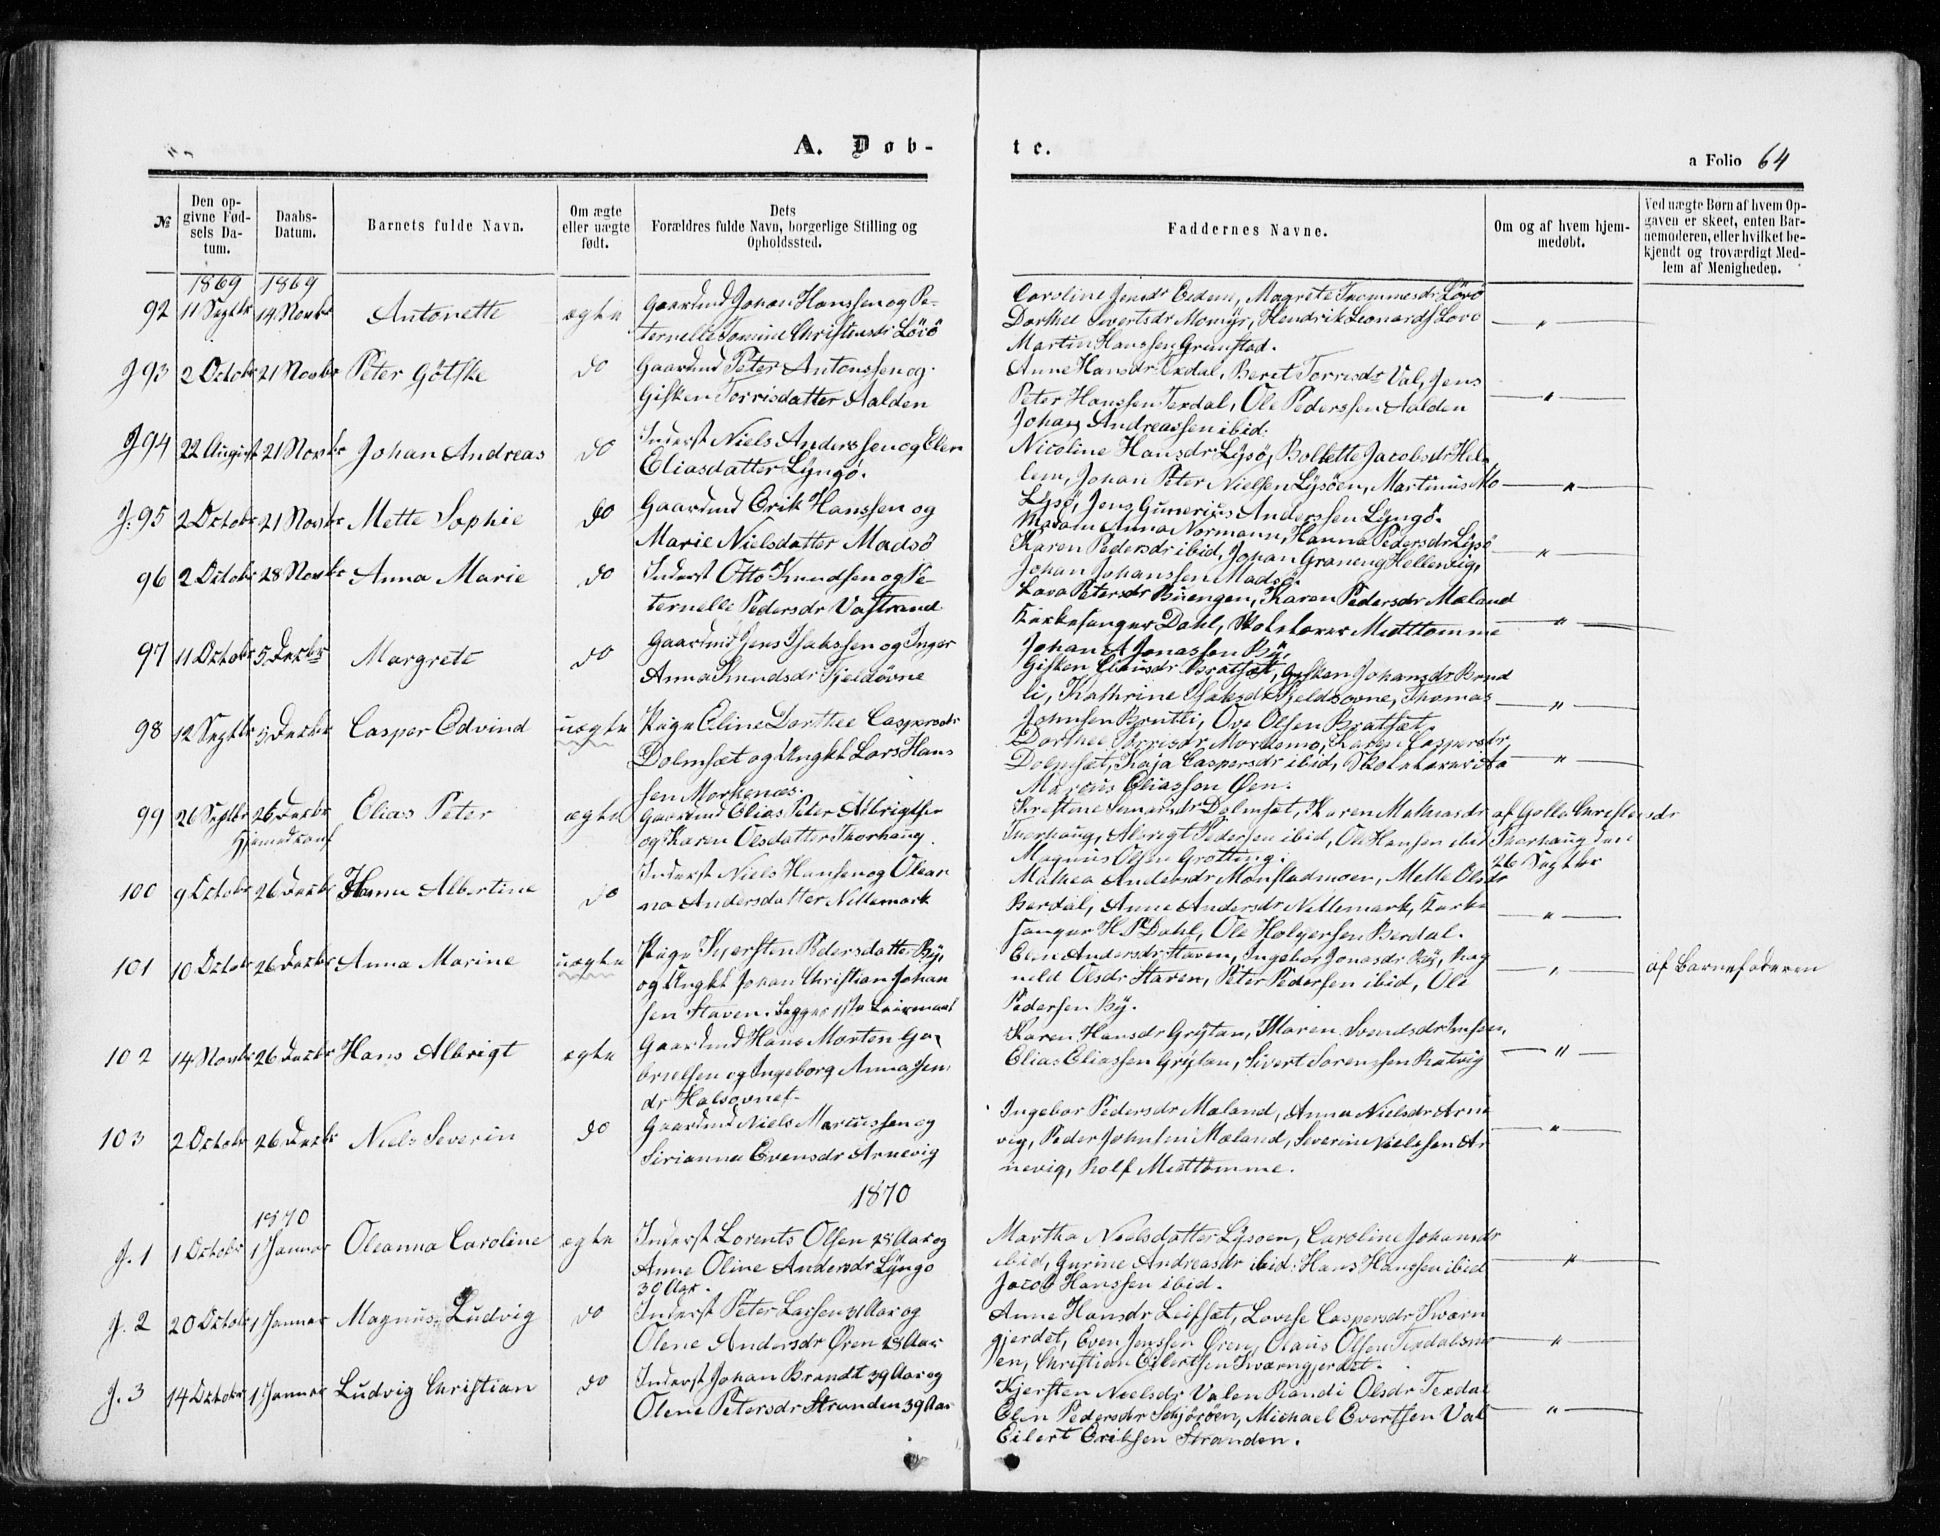 A. Døb-
te.
a Folio 64
№
Den opgivne Fødsels Datum.
Daabs-Datum.
Barnets fulde Navn.
Om ægte eller uægte født.
Dets Forældres fulde Navn, borgerlige Stilling og Opholdssted.
Faddernes Navne.
Om og af hvem hjemmedøbt.
Ved uægte Børn af hvem Opgaven er skeet, enten Barnemoderen, eller hvilket bekjendt og troværdigt Medlem af Menigheden.
1869 1869
92 11 Septbr 14 Novbr Antonette ægte Gaardmd Johan Hanssen og Pe-
ternelle Christensdr Lörö
Caroline Jensdr Magrete Lörö
Dorthe Sivertsdr Momyr, Hendrik Leonards Lörö
Martin Hanssen Grimstad.
J 93 2 Octobr 21 Novbr Peter Götske do Gaardmd Peter Antonssen og
Gisken Torrisdatter Aalden
Anne Hansdr Texdal, Beret Torrisdr Val, Jens
Peter Hanssen Texdal, Ole Pederssen Aalden
Johan Andreassen ibid.
J 94 22 August 21 Novbr Johan Andreas do Inderst Niels Anderssen og Elen
Eliasdatter Lyngö.
Nicoline Hansdr Lysö, Bollette Jacobsdr Hel-
lem, Johan Peter Nielsen Lysöen, Martinus
Lysö, Jens Gunerius Anderssen Lyngö.
J. 95 2 Octobr 21 Novbr Mette Sophie do Gaardmd Erik Hanssen og
Marie Nielsdatter Madsö
Madam Anna Normann, Hanna Pedersdr Lysö
Karen Pedersdr ibid, Johan Graneng Hellesvig,
Johan Johanssen Madsö.
96 2 Octobr 28 Novbr Anna Marie do Inderst Otto Knudsen og Pe-
ternelle Pedersdr Vastrand
Lava Petersdr Buengen, Karen Pedersdr Mæland
Kirkesanger Dahl, Skolelærer Midttømme
Johan A Jonassen By,
97 11 Octobr 5 Decbr Margrete do Gaardmd Jens Isakssen og Inger
Anna Knudsdr Fjeldövne
Gisken Bratsæt, Gisken Johansdr Brud
li, Kathrine Isaksdr Fjeldsövne, Thomas
Johnsen Brutli, Ove Olsen Bratsæt
98 12 Septbr 5 Decbr Casper Edvind uægte Pige Eline Dorthea Caspersdr
Dolmsæt og Ungkl Lars Hans
sen Morkenæs.
Dorthea Torrisdr Karen Caspersdr
Dolmsæt, Kaja Caspersdr ibid, Skolelærer
Marcus Eliassen Öien.
99 26 Septbr 26 Decbr Elias Peter ægte Gaardmd Elias Peter Albrigtsen
HjemmedbConf og Karen Olsdatter Skorhaug.
Kirstine Dolmsæt, Karen Mathiasdr
Albrigt Pedersen ibid, Ole Hansen ibid
Magnus Olsen Grötting.
af Golla Christensdr
Skorhaug den
26 Septbr
100 9 Octobr 26 Decbr Hanna Albertine do Inderst Niels Hansen og Olean
na Andersdatter Nettemark
Mathea Andersdr Monstadmoen, Mette Olsdr
Berdal, Anne Andersdr Nettemark, Kirke
sanger H P Dahl, Ole Holgersen Berdal.
101 10 Octobr 26 Decbr Anna Marine uægte Pige Kjersten Pedersdatter By,
og Ungkl Johan Christian Johan
sen Staven. Begges 1ste Leiermaal
Elen Andersdr Staven, Ingebor Jonasdr By, Rag
nild Olsdr Staven, Peter Pedersen ibid, Ole
Pedersen By.
af Barnefaderen
102 14 Novbr 26 Decbr Hans Albrigt ægte Gaardmd Hans Morten Ga-
brielsen og Ingeborg Anna Jens
dr Halsövnet.
Karen Hansdr Grytan, Maren Svendsdr Imsen,
Elias Eliassen Grytan, Sivert Sorenssen Ratvig
103 2 Octobr 26 Decbr Niels Severin do Gaardmd Niels Marcussen og
Sirianna Evensdr Arnevig
Ingebor Pedersdr Mæland, Anna Nielsdr Arne
vig, Peder Johnsen Mæland, Severin Nielssen Ar
nevig, Rolf Midttømme.
1870
1870
J. 1 1 Octobr 1 Januar Oleanna Caroline ægte Inderst Lorents Olsen 28 Aar og
Anne Oline Andersdr Lyngö
30 Aar.
Martha Nielsdatter Lysöen, Caroline Johansdr
ibid, Gurine Andreasdr ibid. Hans Hanssen ibid
Jacob Hanssen ibid.
J. 2 20 Octobr 1 Januar Magnus Ludvig do Inderst Peter Larsen 31 Aar og
Olene Andersdr Ören 28 Aar
Anne Hansdr Leifsæt, Lovise Caspersdr Kværn
gjerdet, Even Jenssen Ören, Olaus Olsen Texdalsmo
en, Christian Eilertsen Kværngjerdet.
J. 3 14 Octobr 1 Januar Ludvig Christian do Inderst Johan Brandt 39 Aar og
Olene Petersdr Stranden 39 Aar
Kjersten Nielsdr Valen Randi Olsdr Texdal
Elen Pedersdr Schjöröen, Michael Evertsen Val
Eilert Eriksen Stranden.